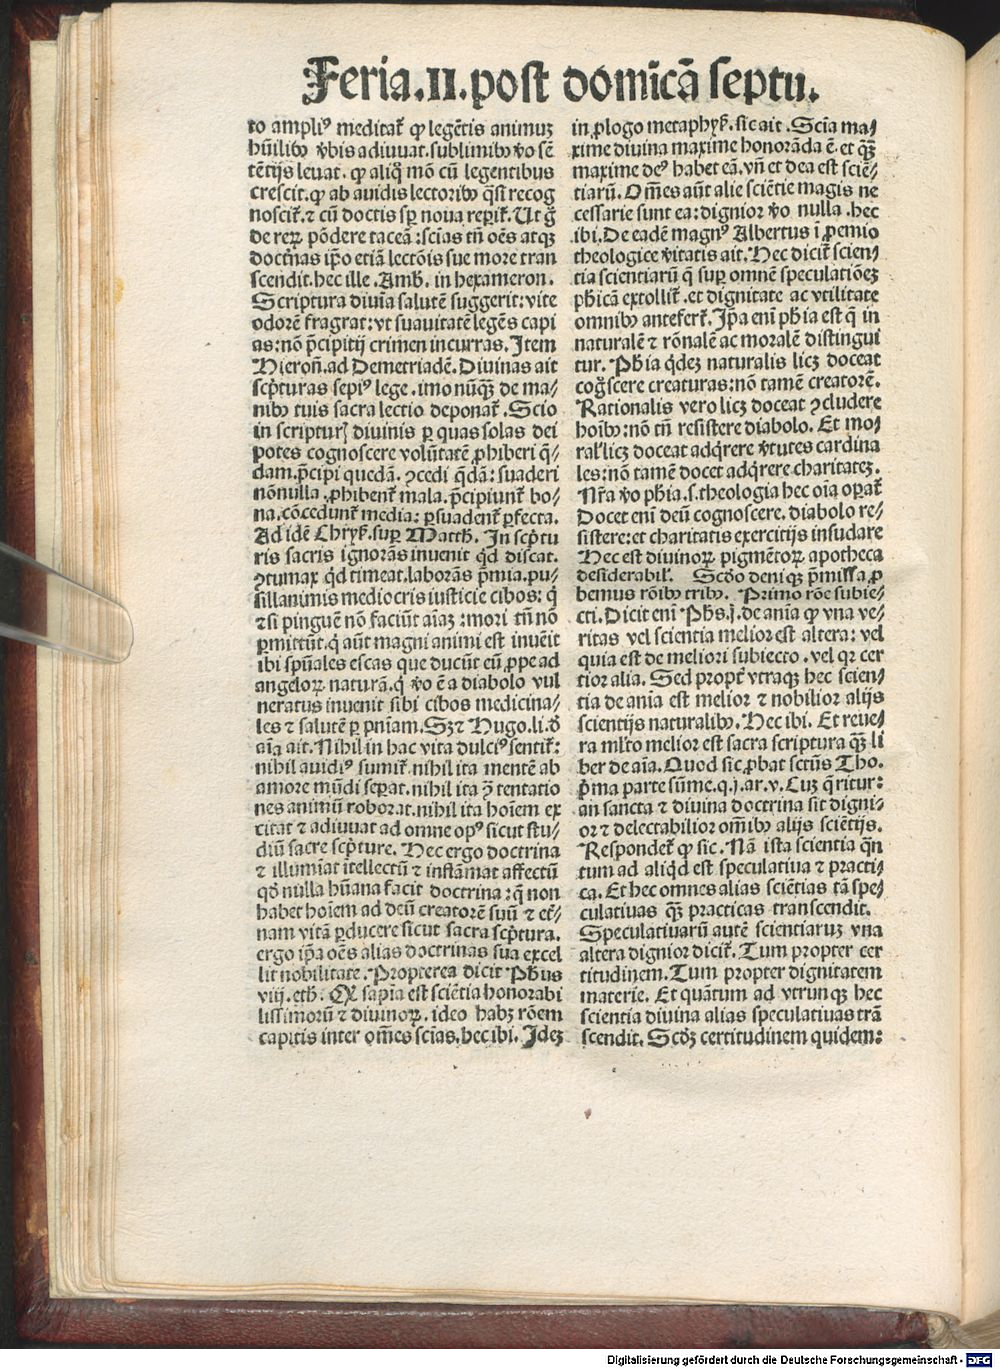 Feria.II.post domīcā septu.
to ampliꝰ meditat᷑ qꝛ legētis animuꝫ
hūilibꝰ v̄bis adiuuat.sublimibꝰ v̄o sē
tētijs leuat. qꝛ aliq̄ mō cū legentibus
crescit.qꝛ ab auidis lectoribꝰ q̄si recog
noscit᷑.⁊ cū doctis sp̄ noua reꝑit᷑. Ut g̊
de reꝝ pōdere taceā:scīas tn̄ oēs atqꝫ
doctrīas ip̄o etiā lectōis sue more tran
scendit.hec ille. Amb. in hexameron.
Scriptura diuīa salutē suggerit:vite
odorē fragrat:vt suauitatē legēs capi
as:nō p̄cipitij crimen incurras. Item
Hieroñ.ad Demetriadē.Diuinas ait
scp̄turas sepiꝰ lege.imo nūqꝫ de ma-
nibꝰ tuis sacra lectio deponat᷑.Scio
in scripturꝭ diuinis ꝑ quas solas dei
potes cognoscere volūtatē ꝓhiberi q̄-
dam.p̄cipi quedā.ꝯcedi q̄dā:suaderi
nōnulla.ꝓhibent᷑ mala.p̄cipiunt᷑ bo-
na.cōcedunt᷑ media:ꝑsuadent᷑ ꝑfecta.
Ad idē Chryẜ.suꝑ Matth. In scp̄tu
ris sacris ignorās inuenit qd̄ discat.
ꝯtumax qd̄ timeat.laborās p̄mia.pu-
sillanimis mediocris iusticie cibos: q̇
⁊si pinguē nō faciūt aīaꝫ:mori tn̄ nō
ꝑmittūt.q̇ aūt magni animi est inuēit
ibi spūales escas que ducūt eū ꝓpe ad
angeloꝝ naturā.q̇ v̄o ē a diabolo vul
neratus inuenit sibi cibos medicina-
les ⁊ salutē ꝑ pnīam.Sꝫ⁊ Hugo.li.d̄
aīa ait.Nihil in hac vita dulciꝰ sentit᷑:
nihil auidiꝰ sumit᷑.nihil ita mentē ab
amore mūdi seꝑat.nihil ita ꝯ̄ tentatio
nes animū roborat.nihil ita hoīem ex
citat ⁊ adiuuat ad omne opꝰ sicut stu-
diū sacre scp̄ture. Hec ergo doctrina
⁊ illumīat ītellectū ⁊ inflāmat affectū
qd̄ nulla hūana facit doctrina:q̄ non
habet hoīem ad deū creatorē suū ⁊ et̄-
nam vitā ꝑducere sicut sacra scp̄tura.
ergo ip̄a oēs alias doctrinas sua excel
lit nobilitate.Propterea dicit Ph̄us
viij.eth. Qꝛ sapīa est sciētia honorabi
lissimorū ⁊ diuinoꝝ.ideo habꝫ rōem
capitis inter om̄es scīas.hec ibi. Ideꝫ
in ꝓlogo metaphyẜ.sic ait.Scīa ma-
xime diuina maxime honorāda ē.et qꝫ
maxime deꝰ habet eā.vn̄ et dea est sciē-
tiarū.Om̄es aūt alie sciētie magis ne
cessarie sunt ea:dignior v̄o nulla.hec
ibi.De eadē magnꝰ Albertus ī ꝓemio
theologice v̄itatis ait.Hec dicit᷑ scien-
tia scientiarū q̄ suꝑ omnē speculatiōeꝫ
ph̄icā extollit᷑.et dignitate ac vtilitate
omnibꝰ antefert᷑.Ip̄a enī ph̄ia est q̄ in
naturalē ⁊ rōnalē ac moralē distingui
tur. Ph̄ia qd̄eꝫ naturalis licꝫ doceat
coḡscere creaturas:nō tamē creatorē.
Rationalis vero licꝫ doceat ꝯcludere
hoībꝰ:nō tn̄ resistere diabolo. Et mo-
ral᷑ licꝫ doceat adq̄rere v̄tutes cardina
les:nō tamē docet adq̄rere charitateꝫ.
Nr̄a v̄o ph̄ia.s.theologia hec oīa oꝑat᷑
Docet enī deū cognoscere.diabolo re-
sistere:et charitatis exercitijs insudare
Hec est diuinoꝝ pigmētoꝝ apotheca
desiderabil᷑. Scd̄o deniqꝫ p̄missa ꝓ
bemus rōibꝰ tribꝰ. Primo rōe subie-
cti.Dicit enī Ph̄s.j.de anīa qꝛ vna ve-
ritas vel scientia melior est altera: vel
quia est de meliori subiecto.vel qꝛ cer
tior alia. Sed propt᷑ vtraqꝫ hec scien-
tia de anīa est melior ⁊ nobilior alijs
scientijs naturalibꝰ.Hec ibi. Et reue-
ra ml̄to melior est sacra scriptura qꝫ li
ber de aīa.Quod sic ꝓbat sctūs Tho.
p̄ma parte sūme.q.j.ar.v.Cuꝫ q̄ritur:
an sancta ⁊ diuina doctrina sit digni-
or ⁊ delectabilior om̄ibꝰ alijs sciētijs.
Respondet᷑ qꝛ sic. Nā ista scientia q̄n
tum ad aliqd̄ est speculatiua ⁊ practi-
ca. Et hec omnes alias sciētias tā spe-
culatiuas qꝫ practicas transcendit.
Speculatiuarū autē scientiaruꝫ vna
altera dignior dicit᷑. Tum propter cer
titudinem. Tum propter dignitatem
materie. Et quātum ad vtrunqꝫ hec
scientia diuina alias speculatiuas trā
scendit. Scd̄ꝫ certitudinem quidem:
Digitalisierung gefördert durch die Deutsche Forschungsgemeinschaft - DFG